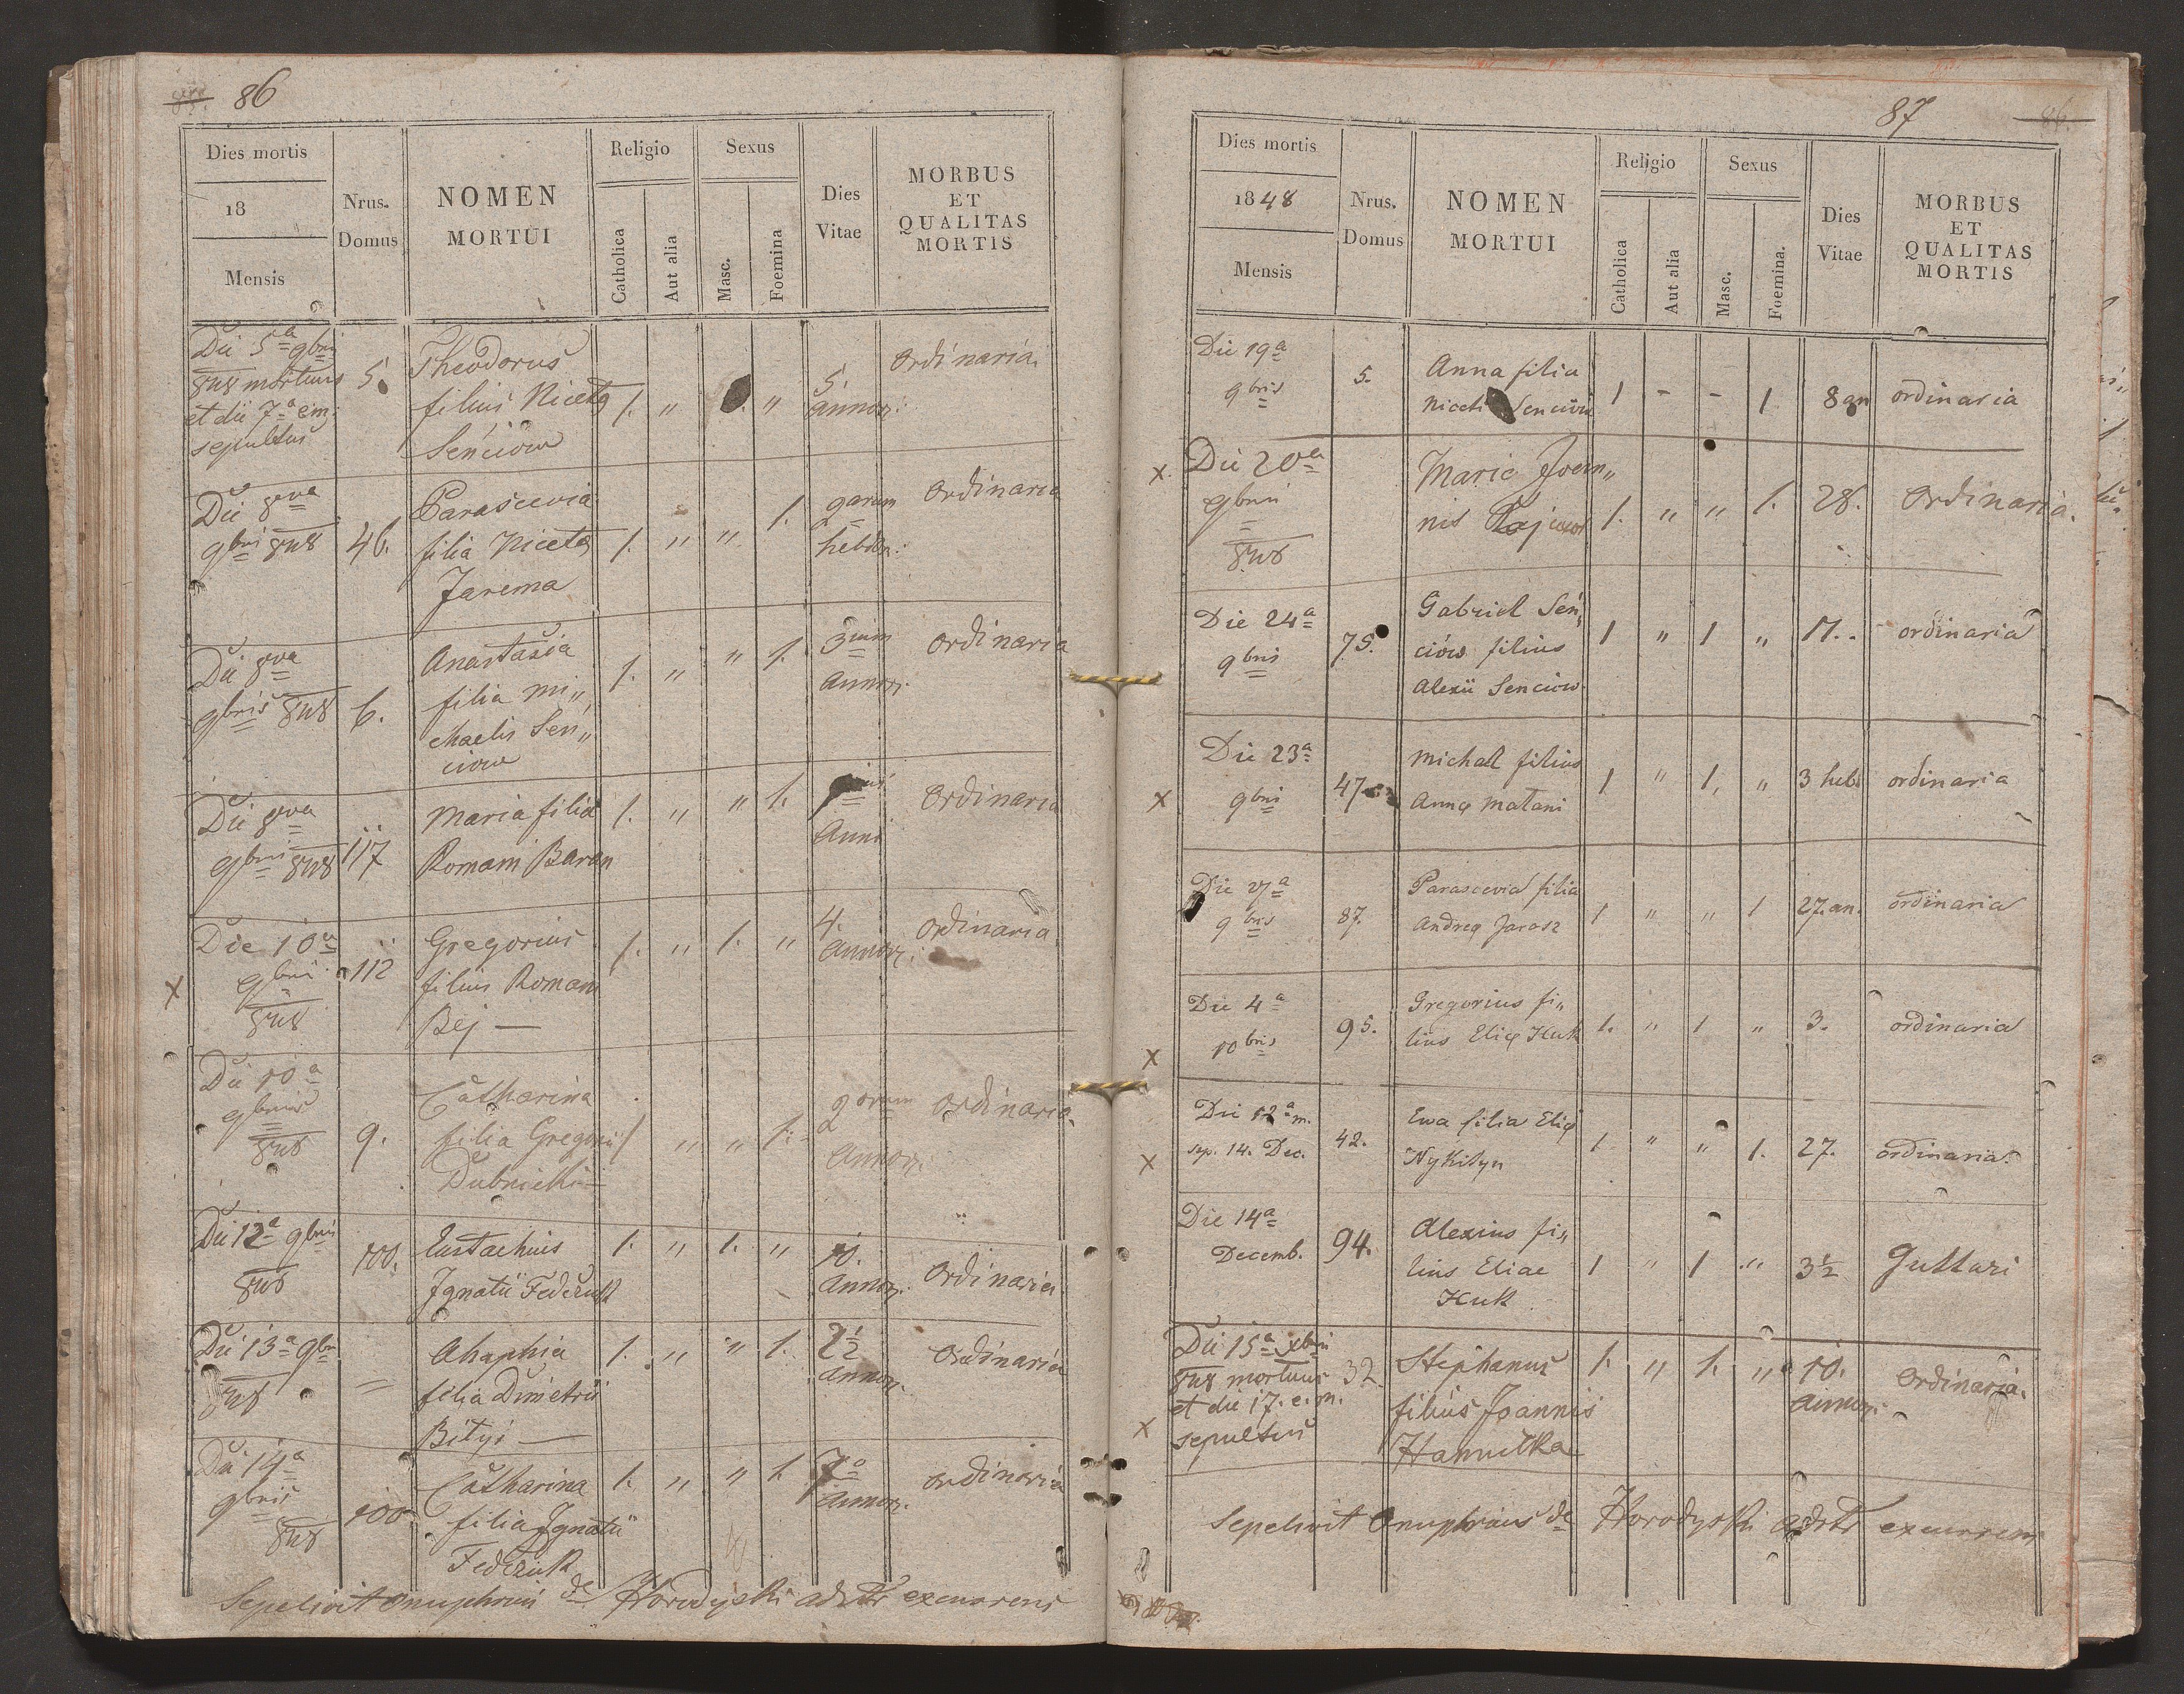 86
Dies mortis
18
Mensis
Nrus.
Domus
NOMEN
MORTUI
Religio
Catholica
Aut alia
Sexus
Masc.
Foemina
Dies
Vitae
MORBUS
ET
QUALITAS
MORTIS
Die 5a 9bris
848 mortuus
et die 7a e.m.
sepultus
5.
Theodorus
filius Nicetę
Senciów
1. " "
5.
annor:
Ordinaria
Die 8va
9bris 848
46.
Parascevia
filia Nicetę
Jarema
1. " " 1.
2arum
hebdo:
Ordinaria
Die 8va
9bris 848
6.
Anastasia
filia Mi„
chaelis Sen„
ciow
1. " " 1.
3ium
Annor.
Ordinaria
Die 8va
9bris 848
117
Maria filia
Romani Baran
1. " " 1.
Anni
Ordinaria
x
Die 10a
9bris
848
112
Gregorius
filius Romani
Bej —
1. " 1. "
4.
Annor:
Ordinaria
Die 10a
9bris
848
9.
Catharina
filia Gregorii
Dubnicki
1 " " 1.
2orum
Annor.
Ordinaria
Die 12a 9bris
848
100.
Eustachius
Jgnatii Fedczuk
1. " 1. "
10.
Annor.
Ordinaria
Die 13a 9bris
848
=
Ahaphia
filia Dimetrii
Bityi —
1. " " 1.
2½
Annor.
Ordinaria
Die 14a
9bris
848
100.
Catharina
filia Jgnatii
Fedczuk
1. " " 1.
7a
Annor.
Ordinaria
Sepelivit Onuphrius de Horodyski admtr excurrens
87
Dies mortis
1848
Mensis
Nrus.
Domus
NOMEN
MORTUI
Religio
Catholica
Aut alia
Sexus
Masc.
Foemina.
Dies
Vitae
MORBUS
ET
QUALITAS
MORTIS
Die 19a
9bris
5.
Anna filia
Niceti Senciów
1 - - 1
8 an
ordinaria
x
Die 20a
9bris
848
Maria Joan„
nis
1. " " 1.
28.
Ordinaria.
Die 24a
9bris
75.
Gabriel Sen„
ciów filius
Alexii Senciow.
1 " 1 "
17..
ordinaria
x
Die 23a
9bris
47
Michael filius
Annę Matani
1 " 1. "
3 heb.
ordinaria
Die 27a
9bris
87.
Parascevia filia
Andreę Jarosz
1 " " 1
27. an.
ordinaria
x
Die 4a
10bris
95.
Gregorius fi„
lius Elię Huk
1. " 1 "
3.
ordinaria
x
Die 12a m.
sep. 14. Dec.
42.
Ewa filia Elię
Nykityn
1. " " 1.
27.
ordinaria.
Die 14a
Decemb.
94.
Alexius fi„
lius Eliae
Huk
1 " 1 "
3½
Gutturi
x
Die 15a xbris
848 mortuus
et die 17. e. m.
sepultus
32.
Stephanus
filius Joannis
Hanuska
1. " 1. "
10.
annor.
Ordinaria.
Sepelivit Onuphrius de Horodyski admtr excurrens